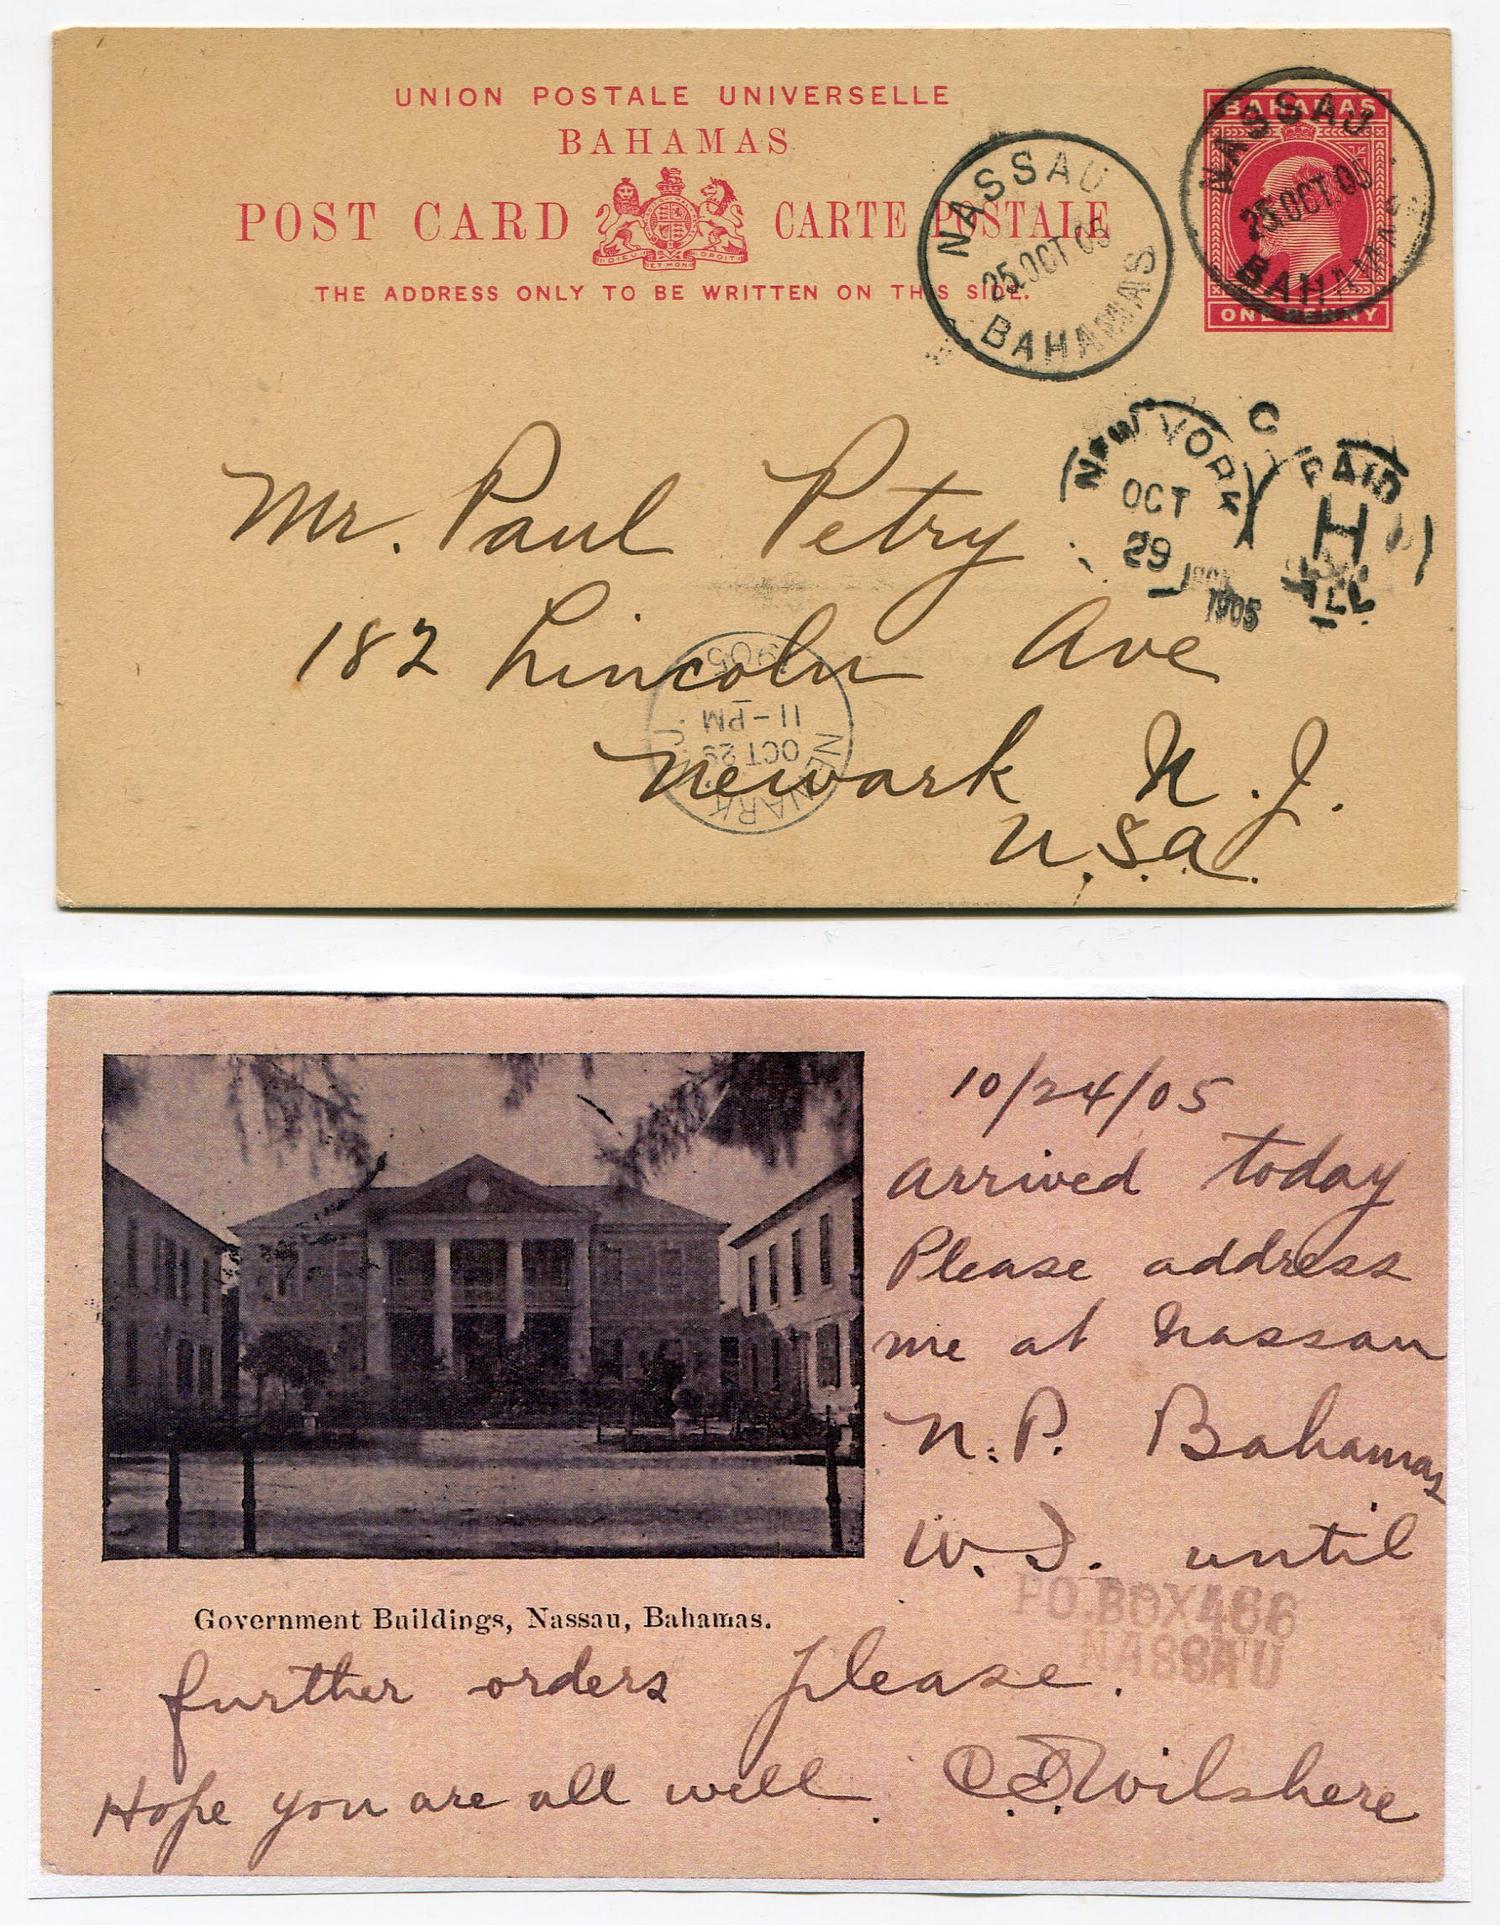 UNION POSTALE UNIVERSELLE
BAHAMAS
POST CARD CARTE POSTALE
DIEU ET MON DROIT
THE ADDRESS ONLY TO BE WRITTEN ON THIS SIDE.
BAHAMAS
ONE PENNY
NASSAU
25.OCT.05
BAHAMAS
NASSAU
25.OCT.05
BAHAMAS
NEW YORK
OCT
29
1905
PAID
H
ALL
Mr. Paul Petry
182 Lincoln Ave
Newark N.J.
U.S.A.
NEWARK N.J.
OCT 29
11-PM
1905
10/24/05
Arrived today
Please address
me at Nassau
N.P. Bahamas
W.I. until
PO BOX 466
NASSAU
Government Buildings, Nassau, Bahamas.
further orders please.
Hope you are all well. C.E. Wilshere